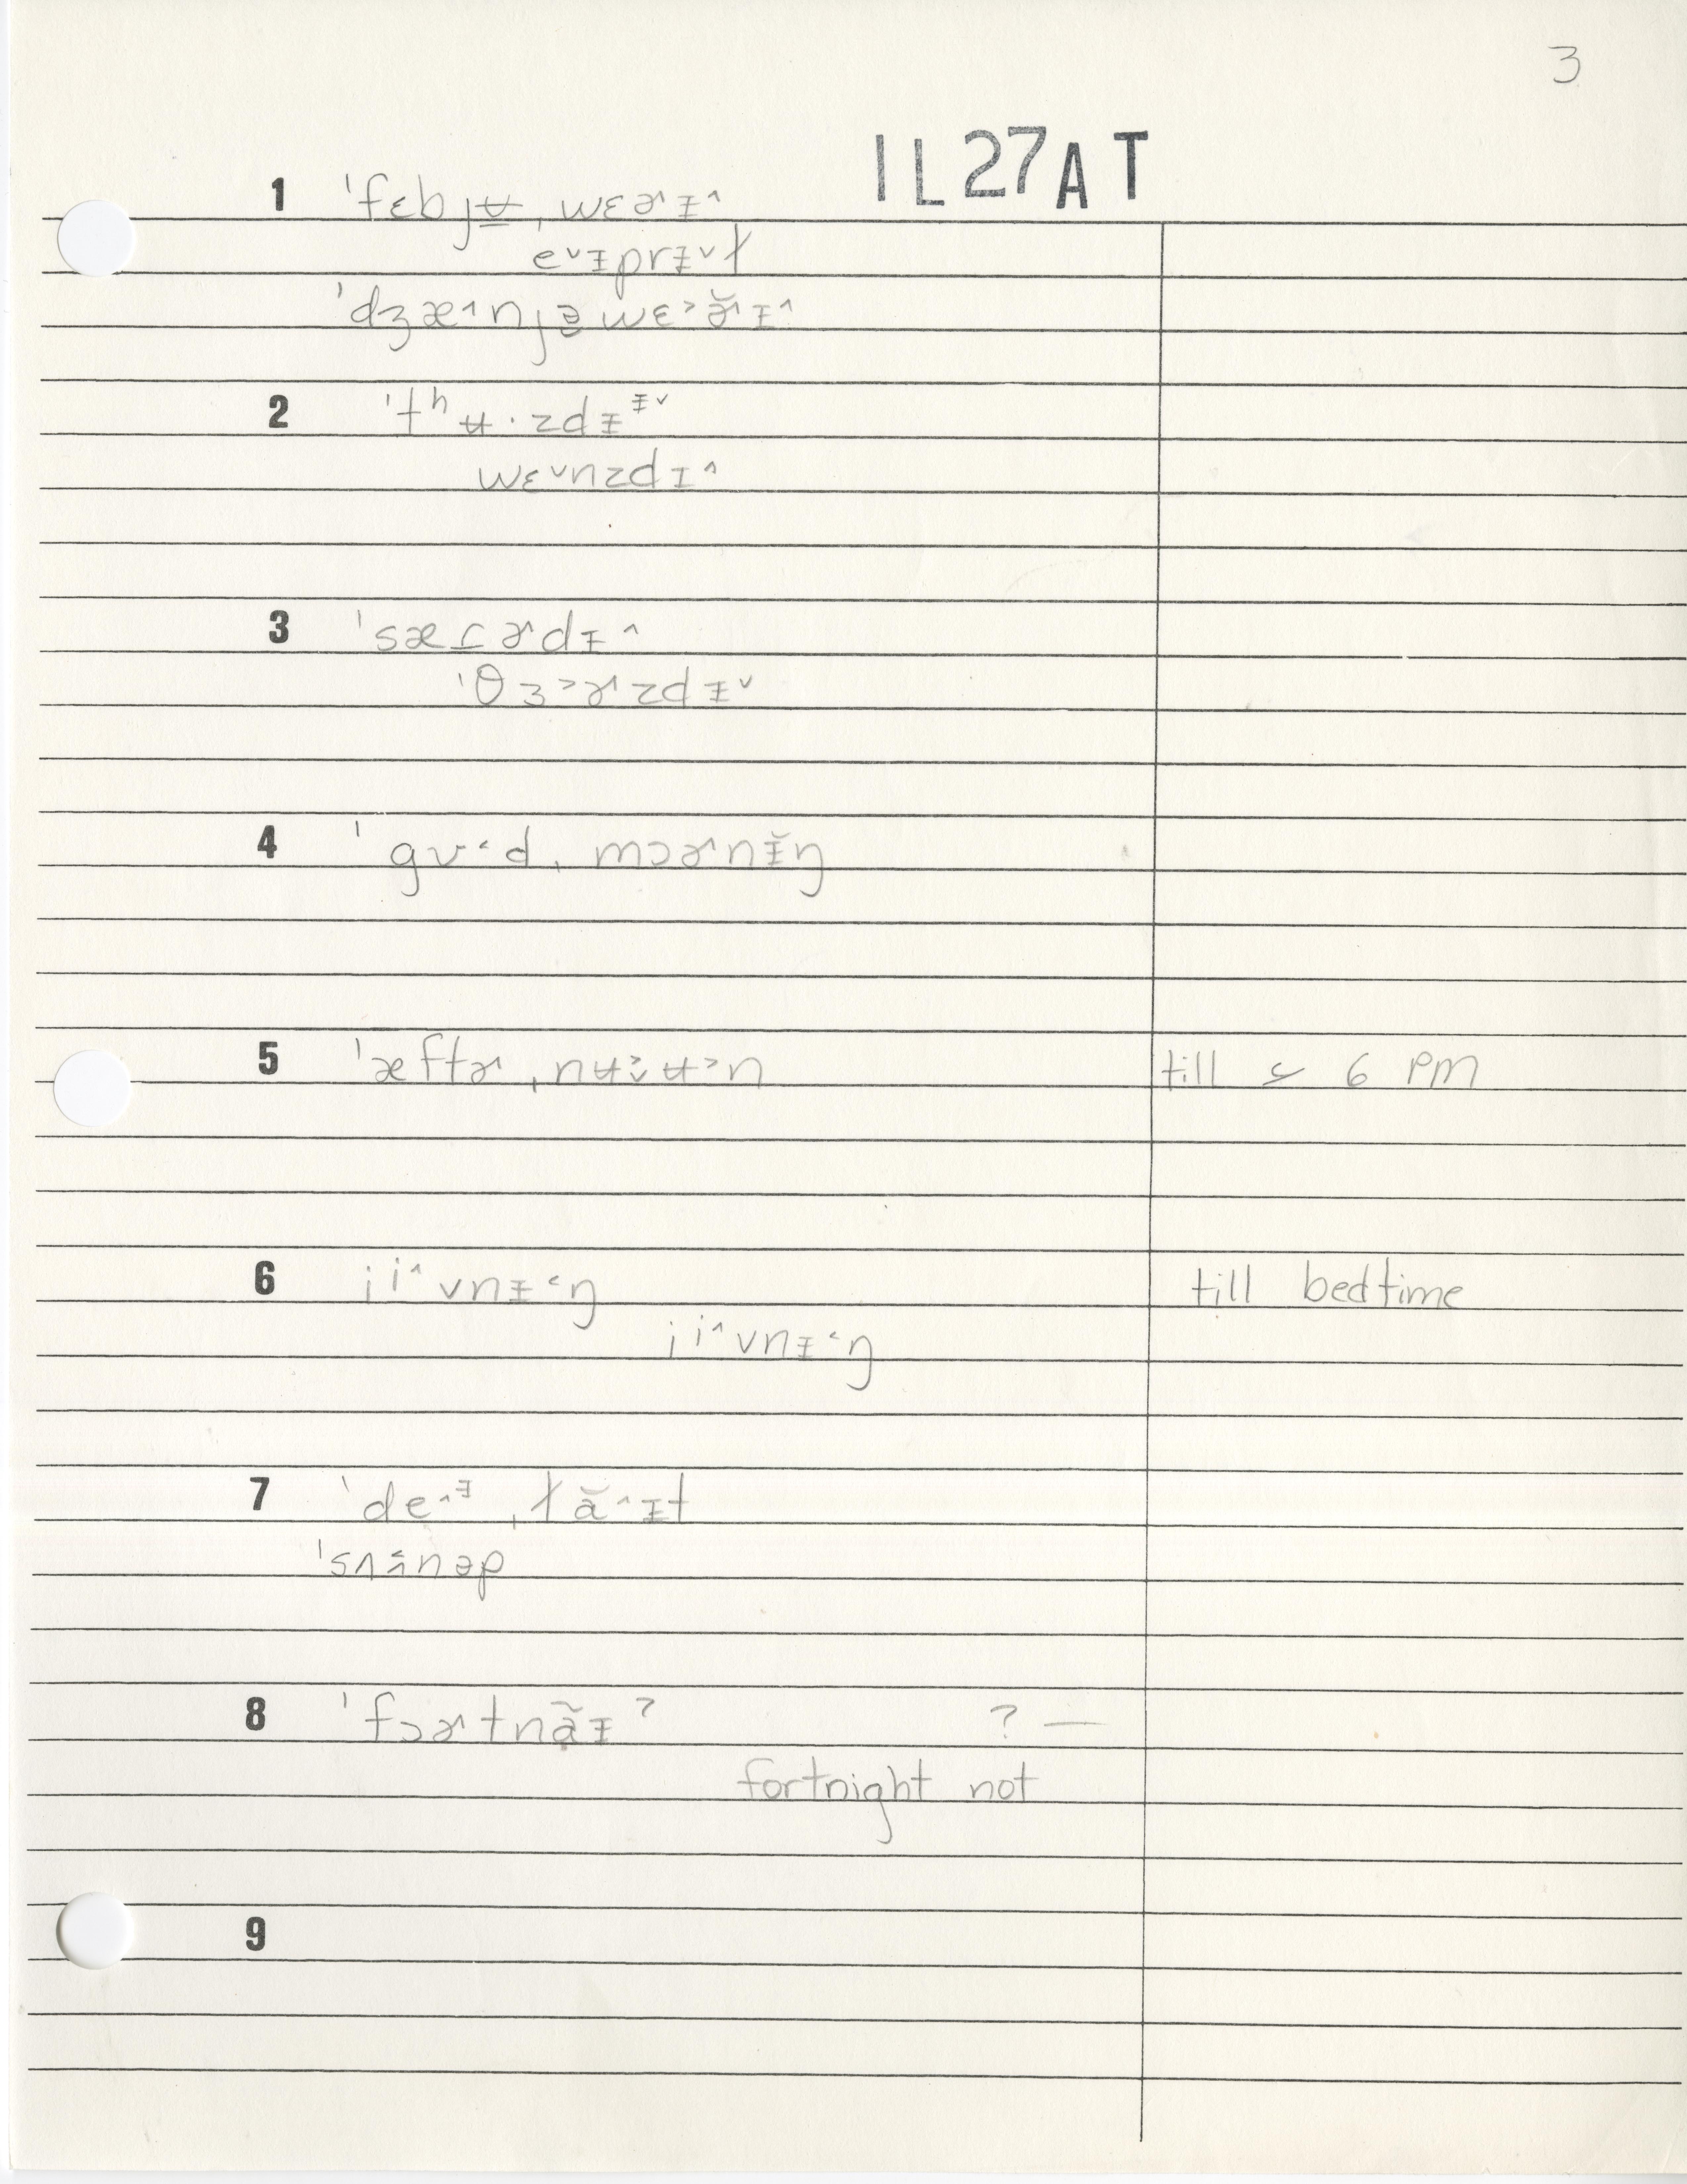 3
1L27AT
1 ˈfɛbjʉ̱ˌwɛɚɪ̵˄
e˅ɪ̵prɪ̵˅ɫ
ˈdʒæ˄njə̱wɛ˃ɚ̆ɪ˄
2 ˈtʰʉ·zdɪ̵ᵻ˅
wɛ˅nzdɪ˄
3 ˈsæɾ̱ɚdɪ̵˄
ˈθɜ˃ɚzdɪ̵˅
4 ˈgʊ˂dˌmɔɚnɪ̵̆ŋ
5 ˈæftɚˌnʉ̬˃ʉ˃n till ≃ 6 PM
6 i̱i˄vnɪ̵˂ŋ till bedtime
i̱i˄vnɪ̵˂ŋ
7 ˈde˄ᵻˌɫă˄ɪt
ˈsʌ̭nəp
8 ˈfɔɚtnãɪ̵ˀ ? —
fortnight not
9